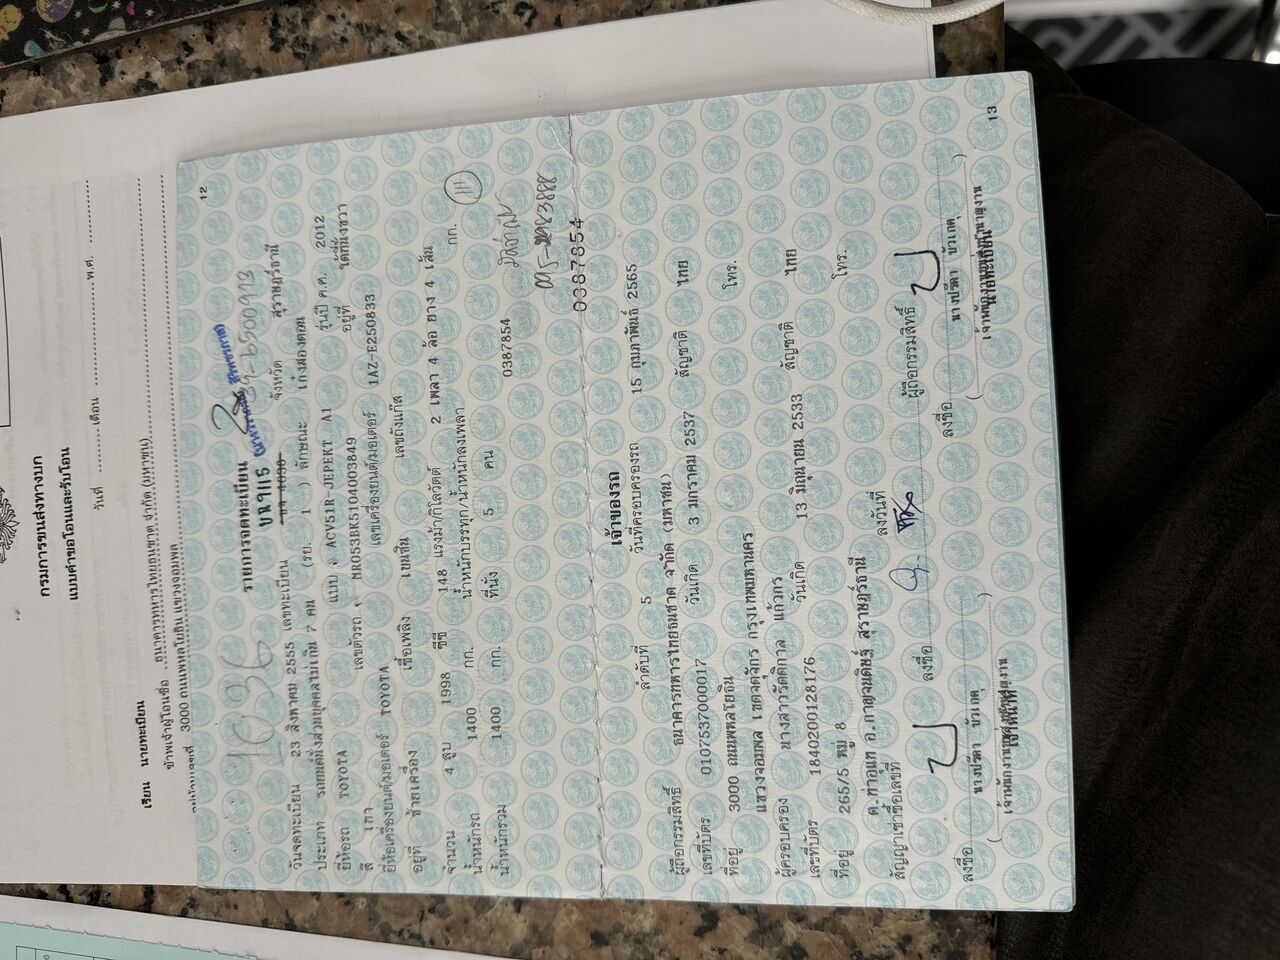 กรมการขนส่งทางบก
แบบคำขอโอนและรับโอน
วันที่ ............ เดือน ............ พ.ศ. ............
เรียน นายทะเบียน
ข้าพเจ้าผู้โอนชื่อ ธนาคารทหารไทยธนชาต จำกัด (มหาชน)
3000 ถนนพหลโยธิน แขวงจอมพล
12
1036
รายการจดทะเบียน 2
ขห 9115
วันจดทะเบียน 23 สิงหาคม 2555 เลขทะเบียน จังหวัด สุราษฎร์ธานี
ประเภท รถยนต์นั่งส่วนบุคคลไม่เกิน 7 คน (รย. 1 ) ลักษณะ เก๋งสองตอน
ยี่ห้อรถ TOYOTA แบบ ACV51R-JEPEKT A1 รุ่นปี ค.ศ. 2012
สี เทา เลขตัวรถ MR053BK5104003849 อยู่ที่ ใต้ที่นั่งขวา
ยี่ห้อเครื่องยนต์/มอเตอร์ TOYOTA เลขเครื่องยนต์/มอเตอร์ 1AZ-E250833
อยู่ที่ ซ้ายเครื่อง เชื้อเพลิง เบนซิน เลขถังแก๊ส
จำนวน 4 สูบ 1998 ซีซี 148 แรงม้า/กิโลวัตต์ 2 เพลา 4 ล้อ ยาง 4 เส้น
น้ำหนักรถ 1400 กก. น้ำหนักบรรทุก/น้ำหนักลงเพลา กก.
น้ำหนักรวม 1400 กก. ที่นั่ง 5 คน 0387854
0387854
เจ้าของรถ
ลำดับที่ 5 วันที่ครอบครองรถ 15 กุมภาพันธ์ 2565
ผู้ถือกรรมสิทธิ์ ธนาคารทหารไทยธนชาต จำกัด (มหาชน)
เลขที่บัตร 0107537000017 วันเกิด 3 มกราคม 2537 สัญชาติ ไทย
ที่อยู่ 3000 ถนนพหลโยธิน โทร.
แขวงจอมพล เขตจตุจักร กรุงเทพมหานคร
ผู้ครอบครอง นางสาววรัตติกาล แก้วกร
เลขที่บัตร 1840200128176 วันเกิด 13 มิถุนายน 2533 สัญชาติ ไทย
ที่อยู่ 265/5 หมู่ 8 โทร.
ต.ท่าอุแท อ.กาญจนดิษฐ์ สุราษฎร์ธานี
สัญญาเช่าซื้อเลขที่ ลงวันที่
ลงชื่อ ผู้ถือกรรมสิทธิ์
ลงชื่อ ลงชื่อ
( นางปรีดา บัวเกตุ ) ( นางปรีดา บัวเกตุ )
13